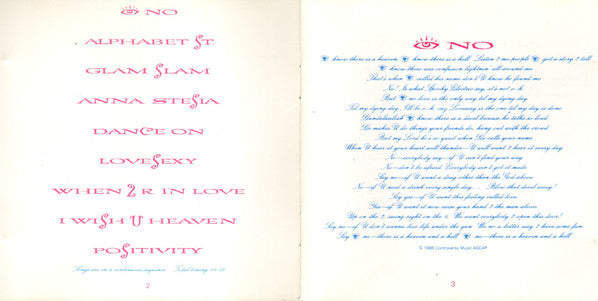 👁 NO
ALPHABET ST
GLAM SLAM
ANNA STESIA
DANCE ON
LOVESEXY
WHEN 2 R IN LOVE
I WISH U HEAVEN
POSITIVITY
Songs are in a continuous sequence. Total timing
2
👁 NO
👁 know there is a heaven, 👁 know there is a hell. Listen 2 me people 👁 got a story 2 tell
👁 know there was confusion lightnin' all around me
That's when 👁 called his name don't U know he found me
No! Is what Spooky Electric say, it's not o.k.
But 👁 no love is the only way til my dying day
Til my dying day I'll be o.k. cuz Lovesexy is the one til my day is done
Hundalasiliah 👁 know there is a devil because he talks so loud
He makes U do things your friends do, hang out with the crowd
But my Lord he's so quiet when He calls your name
When U hear it your heart will thunder—U will want 2 hear it every day
No—everybody say—if U can't find your way
No—don't be afraid. Everybody ain't got it made
Say no—if U want a drug other than the God above
No—if U need a drink every single day... Blow that devil away!
Say yes—if U want this feeling called love
Yes—if U want it now raise your hand 2 the man above
Up on the 2, swing right on the 4. We want everybody 2 open this door!
Say no—if U don't wanna live life under the gun We no a better way 2 have some fun.
Say 👁 no—there is a heaven and a hell. 👁 no—there is a heaven and a hell.
© 1988 Controversy Music ASCAP
3